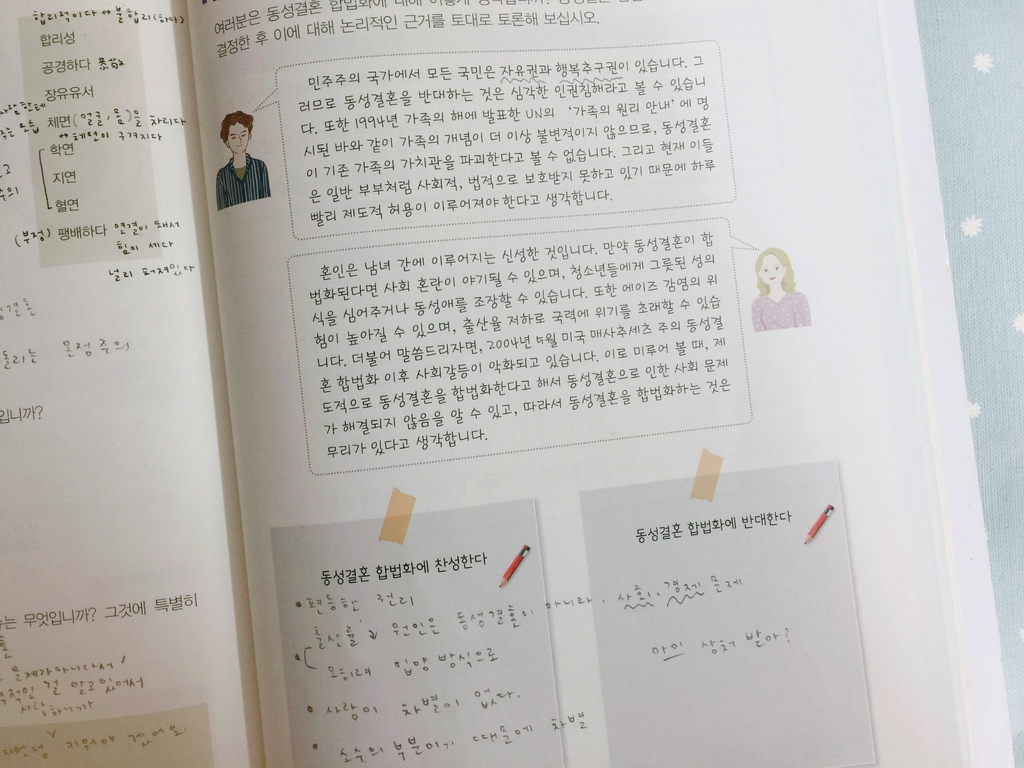 합리적이다 ↔ 불합리(하다)
합리성
공경하다 恭敬
장유유서
체면(얼굴, 몸)을 차리다
↔ 체면이 구겨지다
학연
지연
혈연
(부정) 팽배하다 연결이 돼서
힘이 세다
널리 퍼져있다
온정주의
입니까?
는 무엇입니까? 그것에 특별히
알고 있어서
여러분은 동성결혼 합법화에 대해
결정한 후 이에 대해 논리적인 근거를 토대로 토론해 보십시오.
민주주의 국가에서 모든 국민은 자유권과 행복추구권이 있습니다. 그
러므로 동성결혼을 반대하는 것은 심각한 인권침해라고 볼 수 있습니
다. 또한 1994년 가족의 해에 발표한 UN의 ‘가족의 원리 안내’에 명
시된 바와 같이 가족의 개념이 더 이상 불변적이지 않으므로, 동성결혼
이 기존 가족의 가치관을 파괴한다고 볼 수 없습니다. 그리고 현재 이들
은 일반 부부처럼 사회적, 법적으로 보호받지 못하고 있기 때문에 하루
빨리 제도적 허용이 이루어져야 한다고 생각합니다.
혼인은 남녀 간에 이루어지는 신성한 것입니다. 만약 동성결혼이 합
법화된다면 사회 혼란이 야기될 수 있으며, 청소년들에게 그릇된 성의
식을 심어주거나 동성애를 조장할 수 있습니다. 또한 에이즈 감염의 위
험이 높아질 수 있으며, 출산율 저하로 국력에 위기를 초래할 수 있습
니다. 더불어 말씀드리자면, 2004년 5월 미국 매사추세츠 주의 동성결
혼 합법화 이후 사회갈등이 악화되고 있습니다. 이로 미루어 볼 때, 제
도적으로 동성결혼을 합법화한다고 해서 동성결혼으로 인한 사회 문제
가 해결되지 않음을 알 수 있고, 따라서 동성결혼을 합법화하는 것은
무리가 있다고 생각합니다.
동성결혼 합법화에 찬성한다
• 평등한 권리
• 출산률 ↓ 원인은 동성결혼이 아니라.
오히려 입양 방식으로
• 사랑이 차별이 없다.
• 소수의 부분이기 때문에 차별
동성결혼 합법화에 반대한다
사회、경제 문제
아이 상처 받아?